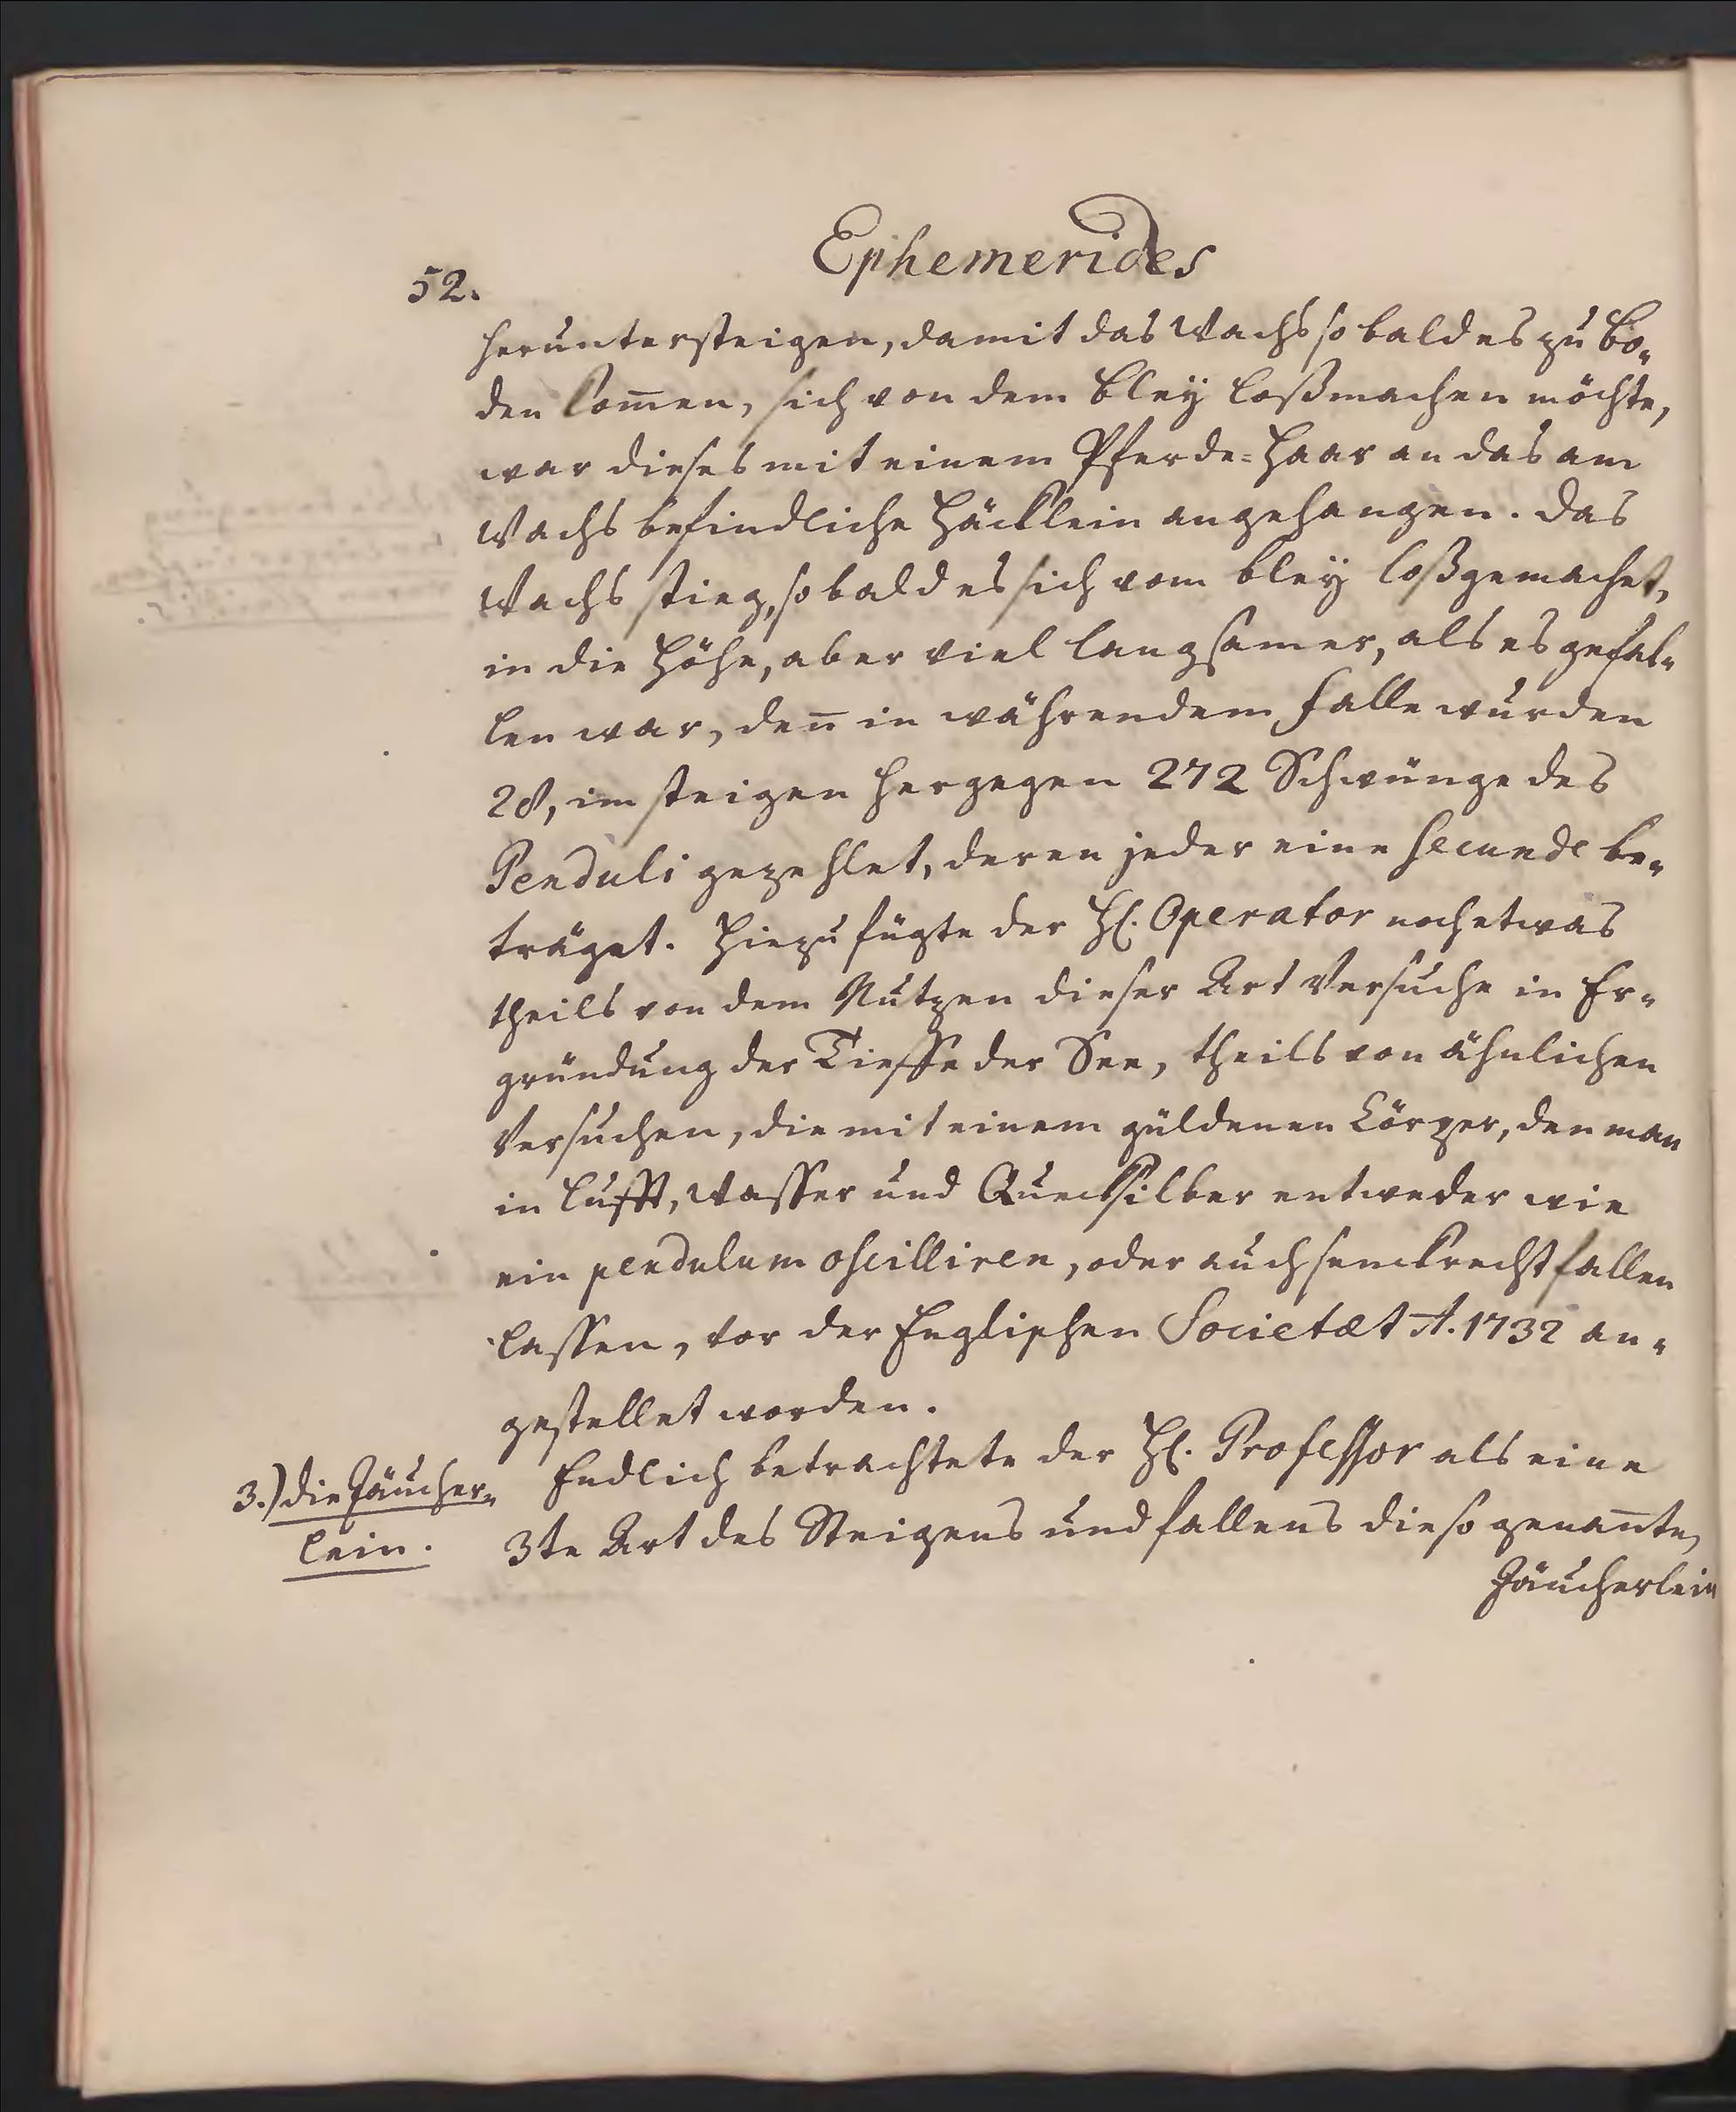 Ephemerides
52.
heruntersteigen, damit das Wachs so bald es zu Bo-
den kom̅en, sich von dem Bley loßmachen möchte,
war dieses mit einem Pferde-Haar an das am
Wachs befindliche Häcklein angehangen. Das
Wachs stieg, so bald es sich vom Bley loßgemachet,
in die Höhe, aber viel langsamer, als es gefal-
len war, den̅ in währendem Falle wurden
28, im steigen hergegen 272 Schwünge des
Penduli gezehlet, deren jeder eine Secunde be-
träget. Hiezu fügte der H. Operator noch etwas
theils von dem Nutzen dieser Art Versuche in Er-
gründung der Tieffe der See, theils von ähnlichen
Versuchen, die mit einem güldenen Cörper, den man
in Lufft, Wasser und Quecksilber entweder wie
ein pendulum oscilliren, oder auch senckrecht fallen
lassen, vor der Englischen Societæt A. 1732 an-
gestellet worden.
Endlich betrachtete der H. Professor als eine
3.) die Täucher-
lein.
3te Art des Steigens und fallens die so genan̅te,
Täucherlein